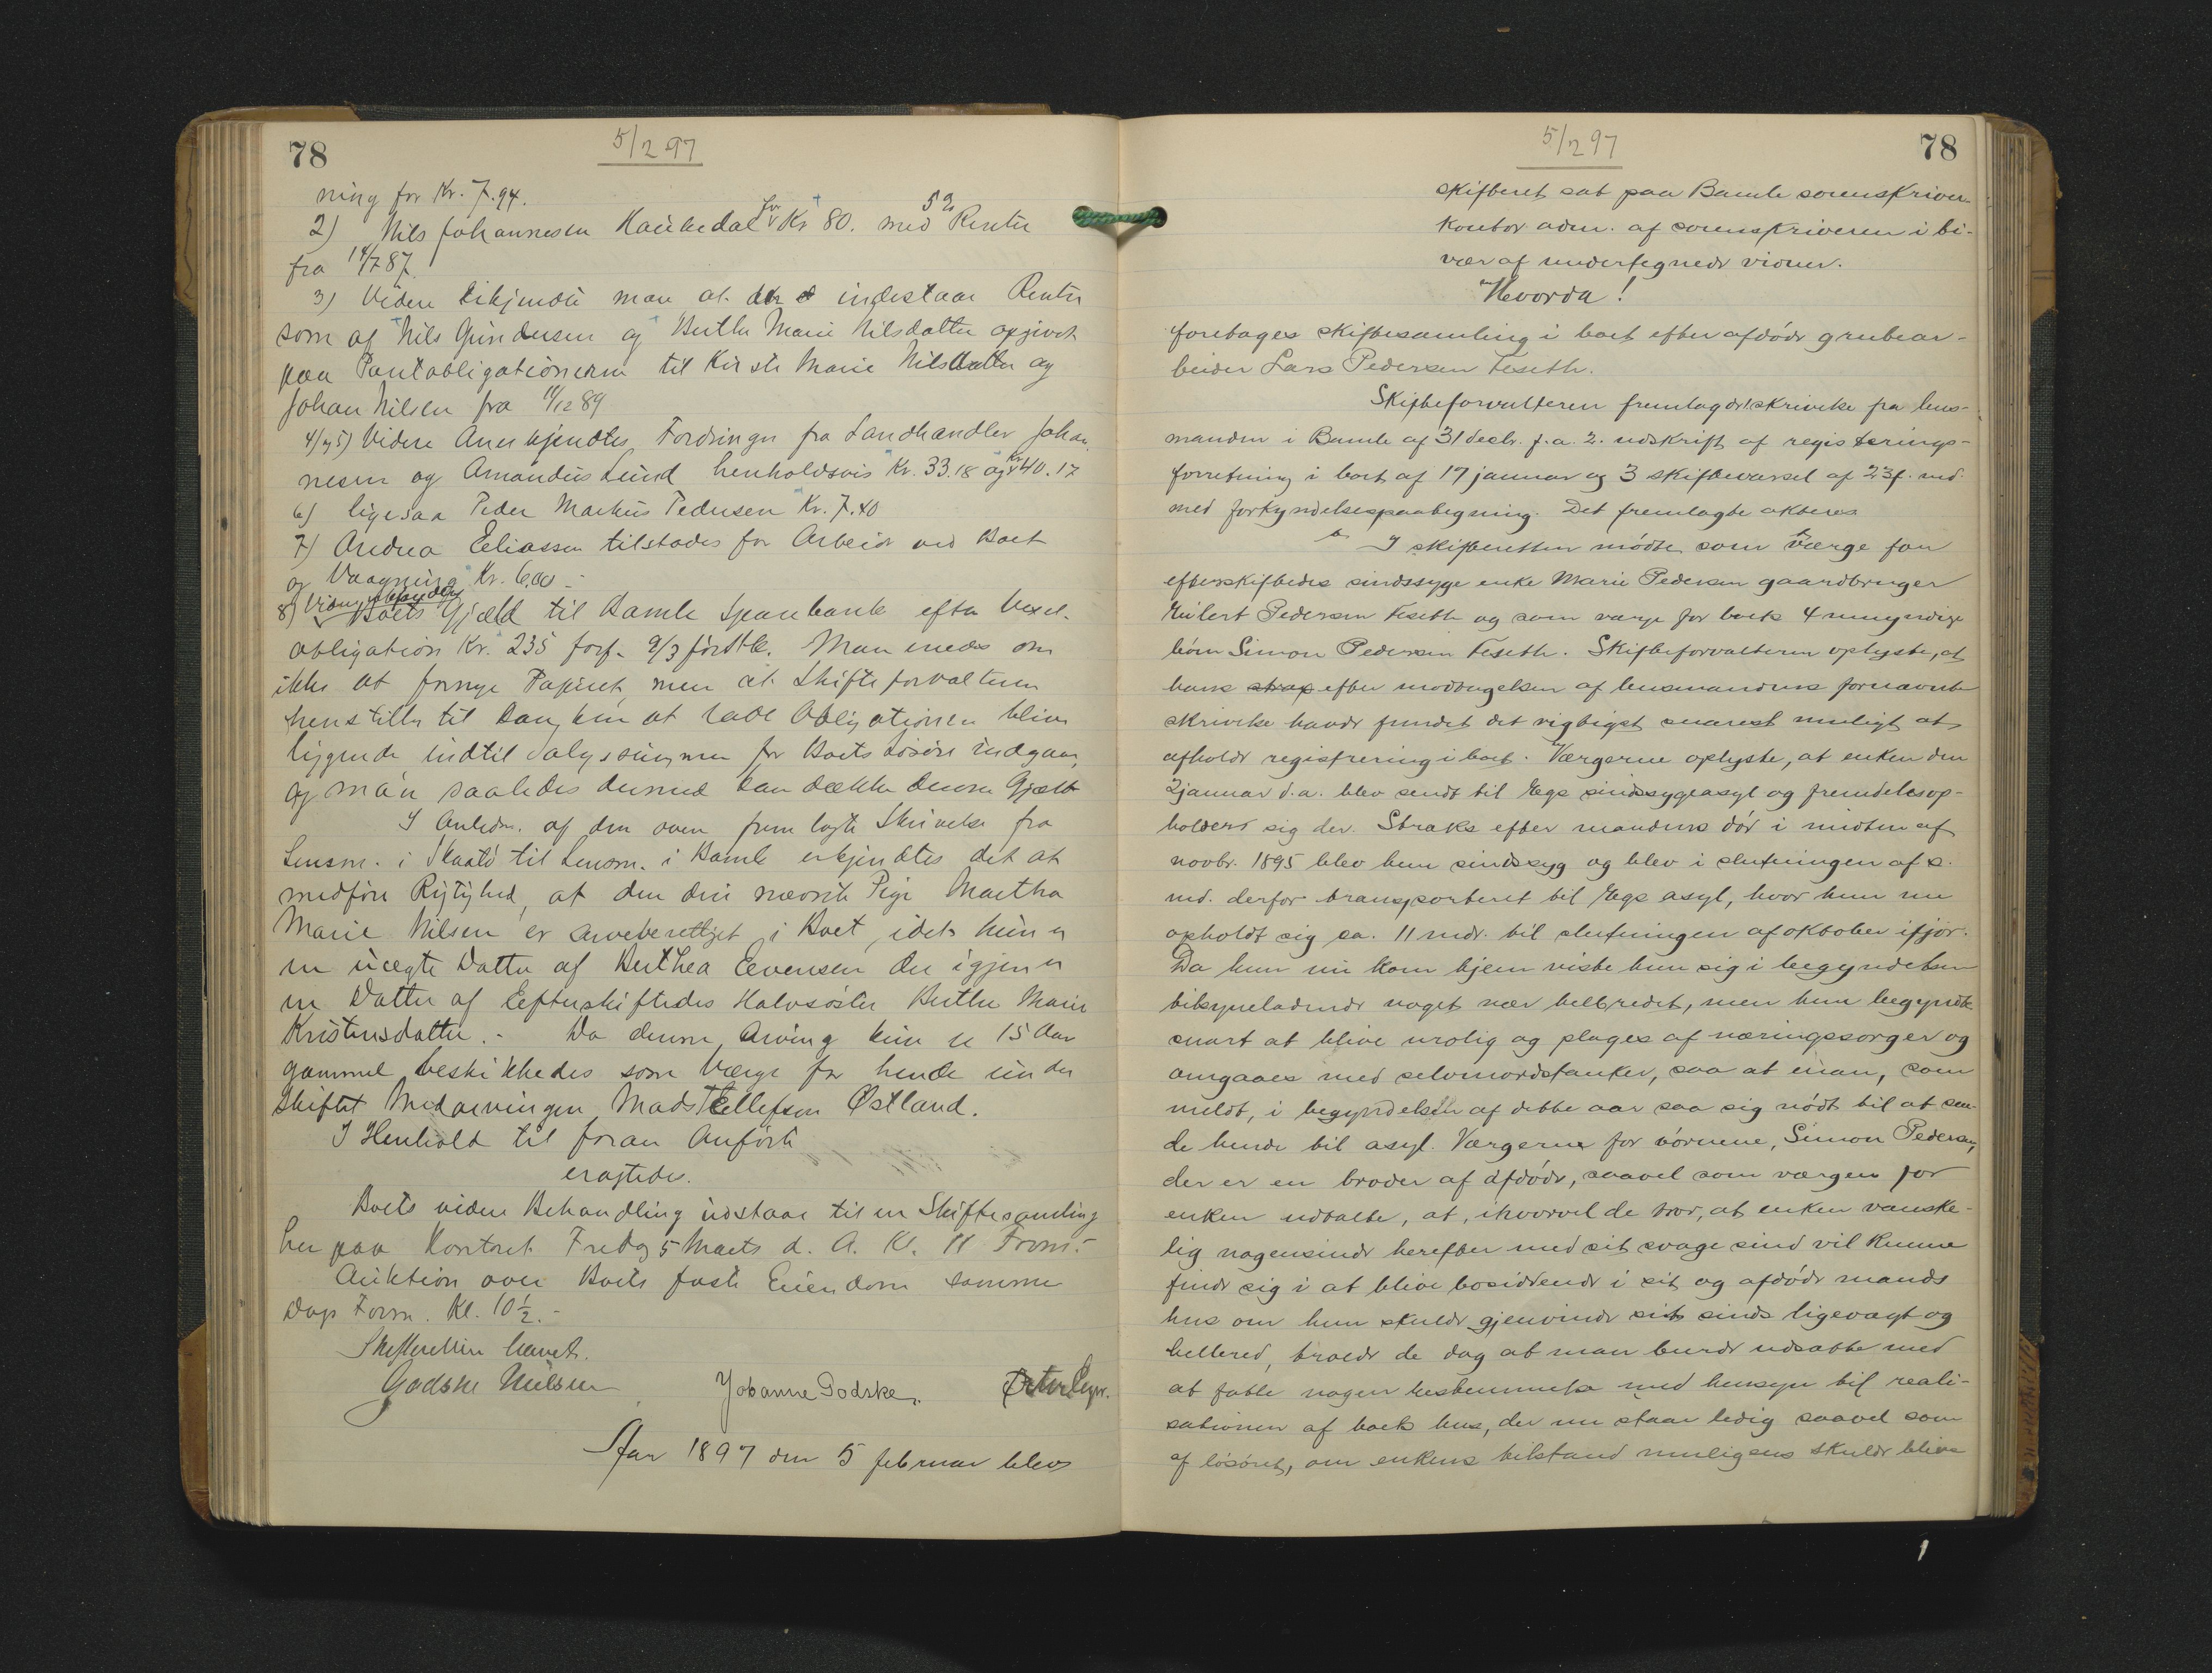 78
5/2 97
ning for Kr. 7.94.
2) Nils Johannesen Haukedal for Kr 80. med 5% Renter
fra 14/7 87.
3) Videre tilkjendte man at der indestaar Renter
som af Nils Gundersen og Berthe Marie Nilsdatter opgivet
paa Pantobligationerne til Kirsti Marie Nilsdatter og
Johan Nilsen fra 11/12 89
4/og 5) Videre Anerkjendtes Fordringer fra Landhandler Johan
nesen og Amandus Lund henholdsvis Kr. 33.18 og Kr 40.17
6) ligesaa Peder Markus Pedersen Kr. 7.40
7) Andrea Eliassen tilstodes for Arbeide ved Boet
og Vaagning Kr. 6,00 -
8) Boets Gjæld til Bamle Sparebank efter Vexel-
obligation Kr. 235 forf. 9/3 förstk. Man enedes om
ikke at fornye Papiret, men at Skifteforvalteren
henstiller til Banken at lade Obligationen blive
liggende indtil Salgssummen for Boets Lösöre indgaar,
og man saaledes dermed kan dække denne Gjæld
I Anledn. af den oven fremlagte Skrivelse fra
Lensm. i Skaatö til Lensm. i Bamle erkjendtes det at
medföre Rigtighed, at den deri nævnte Pige Martha
Marie Nilsen er arveberettiget i Boet, idet hun er
en uægte Datter af Berthea Evensen der igjen er
en Datter af Efterskiftedes Halvsöster Berthe Marie
Kristensdatter. - Da denne Arving kun er 15 Aar
gammel beskikkedes som Værge for hende under
Skiftet Medarvingen Mads Tellefsen Østland.
I Henhold til foran Anförte
eragtedes.
Boets videre Behandling udstaar til en Skiftesamling
her paa Kontoret Fredag 5 Marts d. A. Kl. 11 Form. -
Auktion over Boets faste Eiendom samme
Dags Form. Kl. 10 1/2. -
Skifteretten hævet.
Godske Nielsen Johanne Godske.
Aar 1897 den 5 februar blev
5/2 97
78
skifteret sat paa Bamle sorenskriver-
kontor adm. af sorenskriveren i bi-
vær af undertegnede vidner.
Hvorda!
foretages skiftesamling i boet efter afdöde grubear-
beider Lars Pedersen Feseth.
Skifteforvalteren fremlagde 1. skrivelse fra lens-
manden i Bamle af 31 decbr. f. a. 2. udskrift af registerings-
forretning i boet af 17 januar og 3 skiftevarsel af 23 f. md.
med forkyndelsespaategning. Det fremlagte akteres
I skifteretten mödte som værge for
efterskiftedes sindssyge enke Marie Pedersen gaardbruger
Eilert Pedersen Feseth og som værge for boets 4 umyndige
börn Simon Pedersen Feseth. Skifteforvalteren oplyste, at
han strax efter modtagelsen af lensmandens fornævnte
skrivelse havde fundet det vigtigst snarest muligt at
afholde registrering i boet. Værgerne oplyste, at enken den
2 januar d. a. blev sendt til Egs sindssygeasyl og fremdeles op-
holder sig der. Straks efter mandens död i midten af
novbr. 1895 blev hun sindssyg og blev i slutningen af s.
md. derfor transporteret til Egs asyl, hvor hun nu
opholdt sig ca. 11 mdr. til slutningen af oktober ifjor.
Da hun nu kom hjem viste hun sig i begyndelsen
tilsyneladende noget nær helbredet, men hun begyndte
snart at blive urolig og plages af næringssorger og
omgaaes med selvmordstanker, saa at man, som
meldt, i begyndelsen af dette aar saa sig nödt til at sen-
de hende til asyl. Værgerne for börnene, Simon Pedersen,
der er en broder af afdöde, saavel som værgen for
enken udtalte, at, ihvorvel de tror, at enken vanske-
lig nogensinde herefter med sit svage sind vil kunne
finde sig i at blive bosiddende i sit og afdöde mands
hus om hun skulde gjenvinde sit sinds ligevægt og
helbred, troede de dog at man burde udsætte med
at fatte nogen bestemmelse med hensyn til reali-
sationen af boets hus, der nu staar ledig saavel som
af lösöret, om enkens tilstand muligens skulde blive